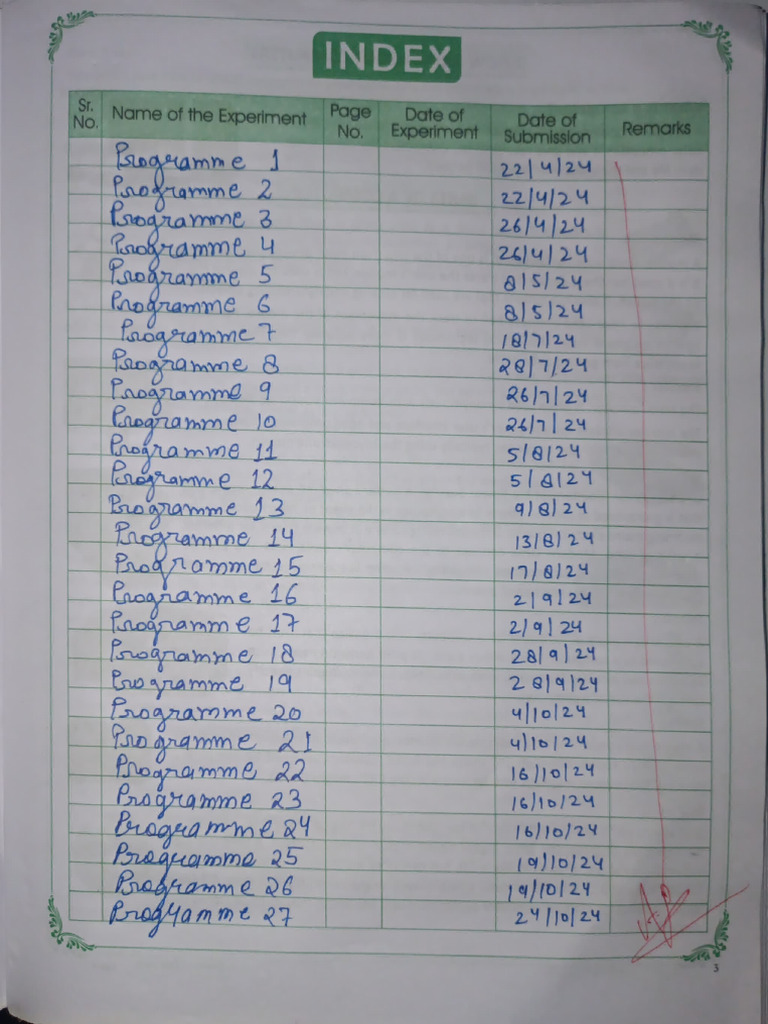 INDEX
Sr. No. Name of the Experiment Page No. Date of Experiment Date of Submission Remarks
Programme 1 22/4/24
Programme 2 22/4/24
Programme 3 26/4/24
Programme 4 26/4/24
Programme 5 8/5/24
Programme 6 8/5/24
Programme 7 18/7/24
Programme 8 28/7/24
Programme 9 26/7/24
Programme 10 26/7/24
Programme 11 5/8/24
Programme 12 5/8/24
Programme 13 9/8/24
Programme 14 13/8/24
Programme 15 17/8/24
Programme 16 2/9/24
Programme 17 2/9/24
Programme 18 28/9/24
Programme 19 28/9/24
Programme 20 4/10/24
Programme 21 4/10/24
Programme 22 16/10/24
Programme 23 16/10/24
Programme 24 16/10/24
Programme 25 19/10/24
Programme 26 19/10/24
Programme 27 24/10/24
3